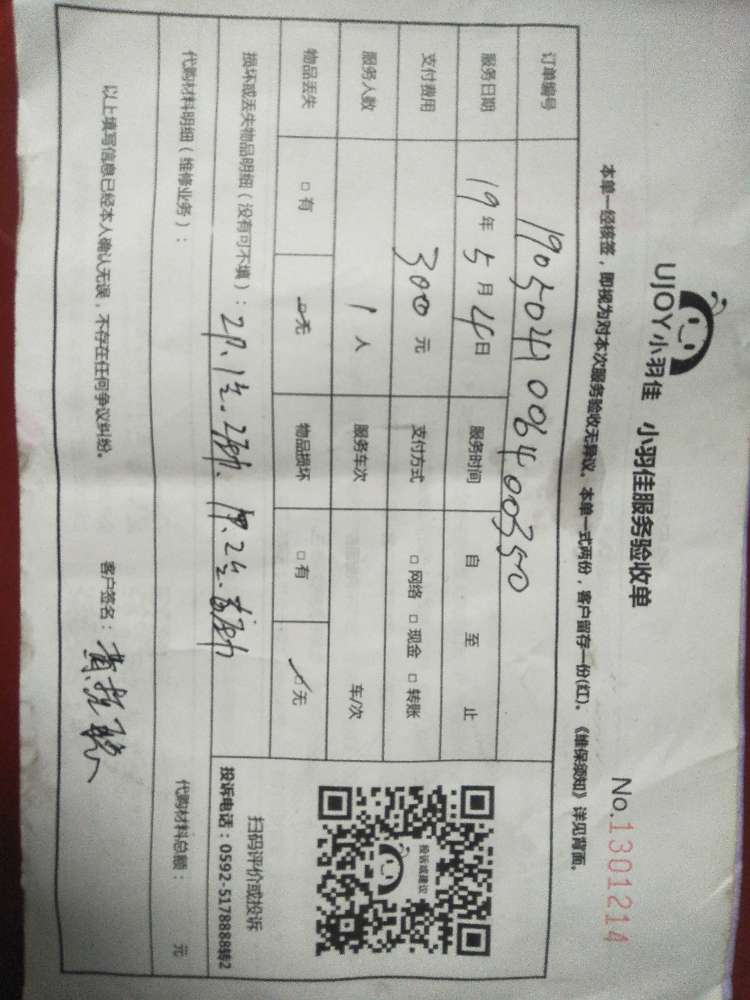 UJOY小羽佳 小羽佳服务验收单
No.1301214
本单一经核签，即视为对本次服务验收无异议。本单一式两份，客户留存一份(红)。《维保须知》详见背面。
订单编号 1905041006400350
服务日期 19年5月4日 服务时间 自 至 止
支付费用 300元 支付方式 □网络 □现金 □转账
服务人数 1人 服务车次 车/次
物品丢失 □有 □无 物品损坏 □有 □无
损坏或丢失物品明细（没有可不填）：
代购材料明细（维修业务）： 代购材料总额： 元
以上填写信息已经本人确认无误，不存在任何争议纠纷。 客户签名：
投诉或建议
扫码评价或投诉
投诉电话：0592-5178888转2